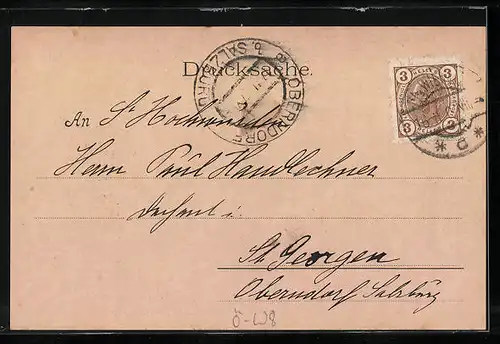 Drucksache.
OBERNDORF b. SALZBURG
3 3
3 3
An St Hochwürden
Herrn Paul Handlechner
Dechant i.
St Georgen
Oberndorf Salzburg
Ö-W8